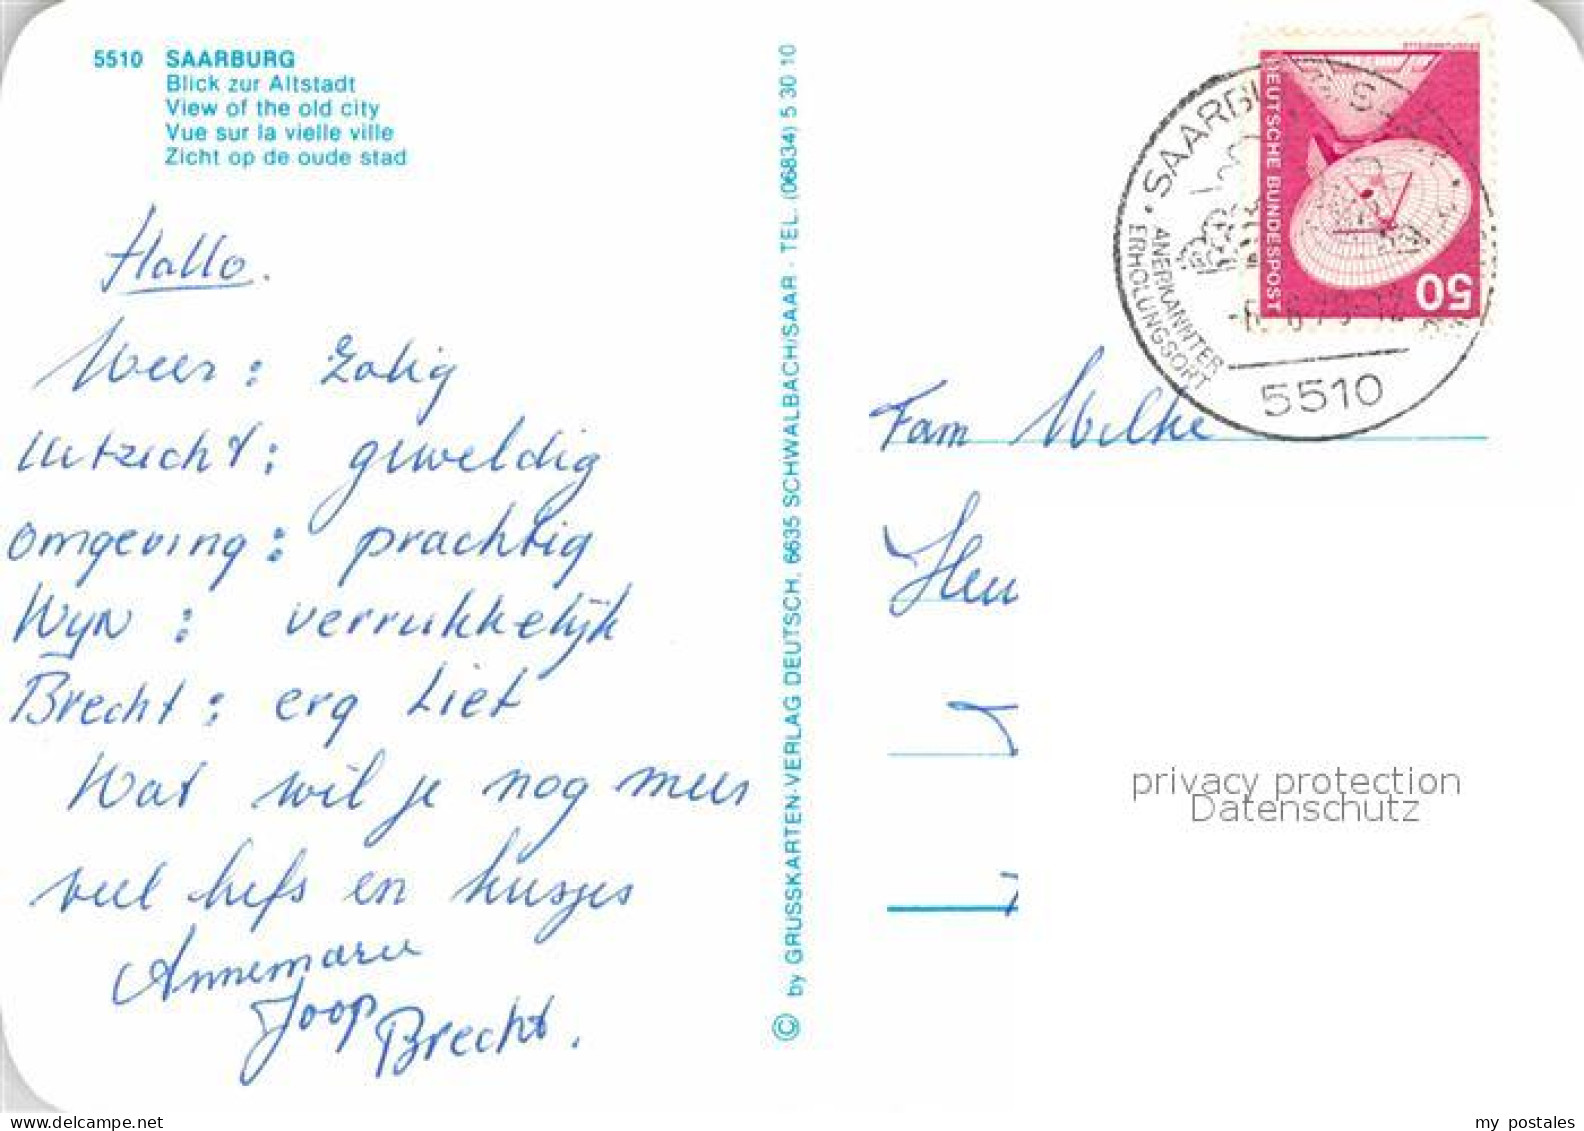 5510 SAARBURG
Blick zur Altstadt
View of the old city
Vue sur la vielle ville
Zicht op de oude stad
Hallo.
Weer : zalig
Uitzicht : geweldig
omgeving : prachtig
Wyn : verrukkelijk
Brecht : erg liet
Wat wil je nog meer
veel liefs en kusjes
Annemarie
Joop
Brecht.
© by GRUSSKARTEN-VERLAG DEUTSCH, 6635 SCHWALBACH/SAAR · TEL. (06834) 5 30 10
DEUTSCHE BUNDESPOST
50
· SAARBU
ANERKANNTER
ERHOLUNGSORT
5510
Fam
privacy protection
Datenschutz
my postales